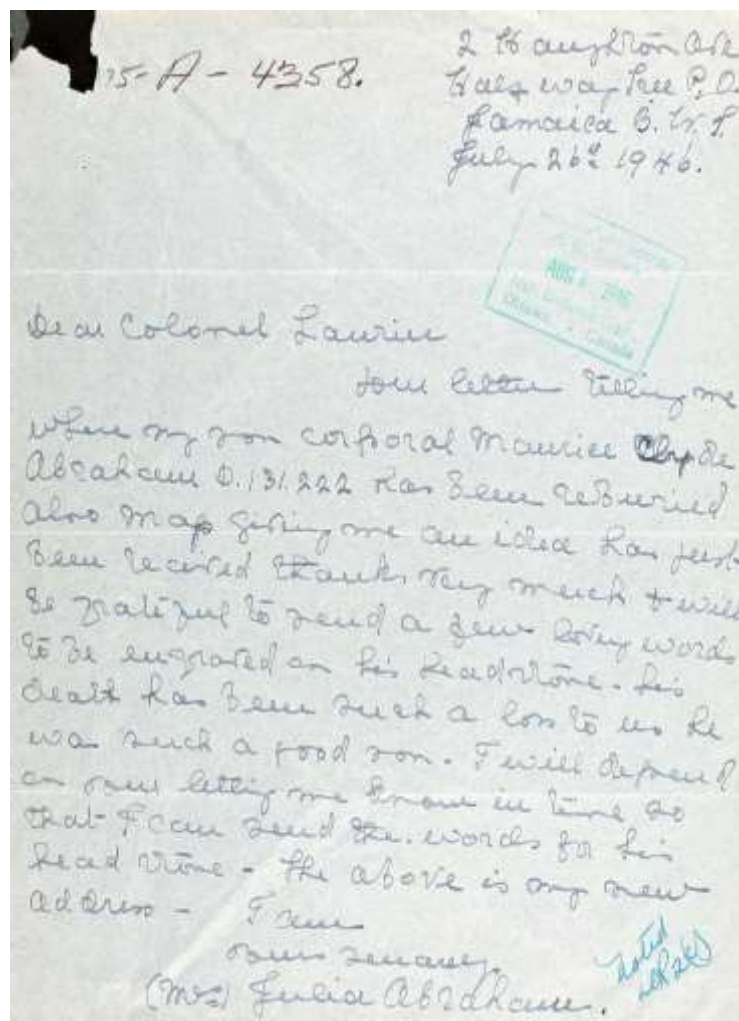 75-A-4358.
2 Haughton Ave
Half way Tree P.O.
Jamaica B.W.I.
July 26th 1946.
AUG 1946
Ottawa - Canada
Dear Colonel Laurie
Your letter telling me
where my son corporal Maurice Clyde
Abraham D.131.222 has been reburied
also map giving me an idea has just
been received thanks very much & will
be grateful to send a few loving words
to be engraved on his headstone. his
death has been such a loss to us he
was such a good son. I will depend
on your letting me know in time so
that I can send the words for his
head stone - the above is my new
address - I am
yours sincerely,
(Mrs) Julia Abraham.
noted